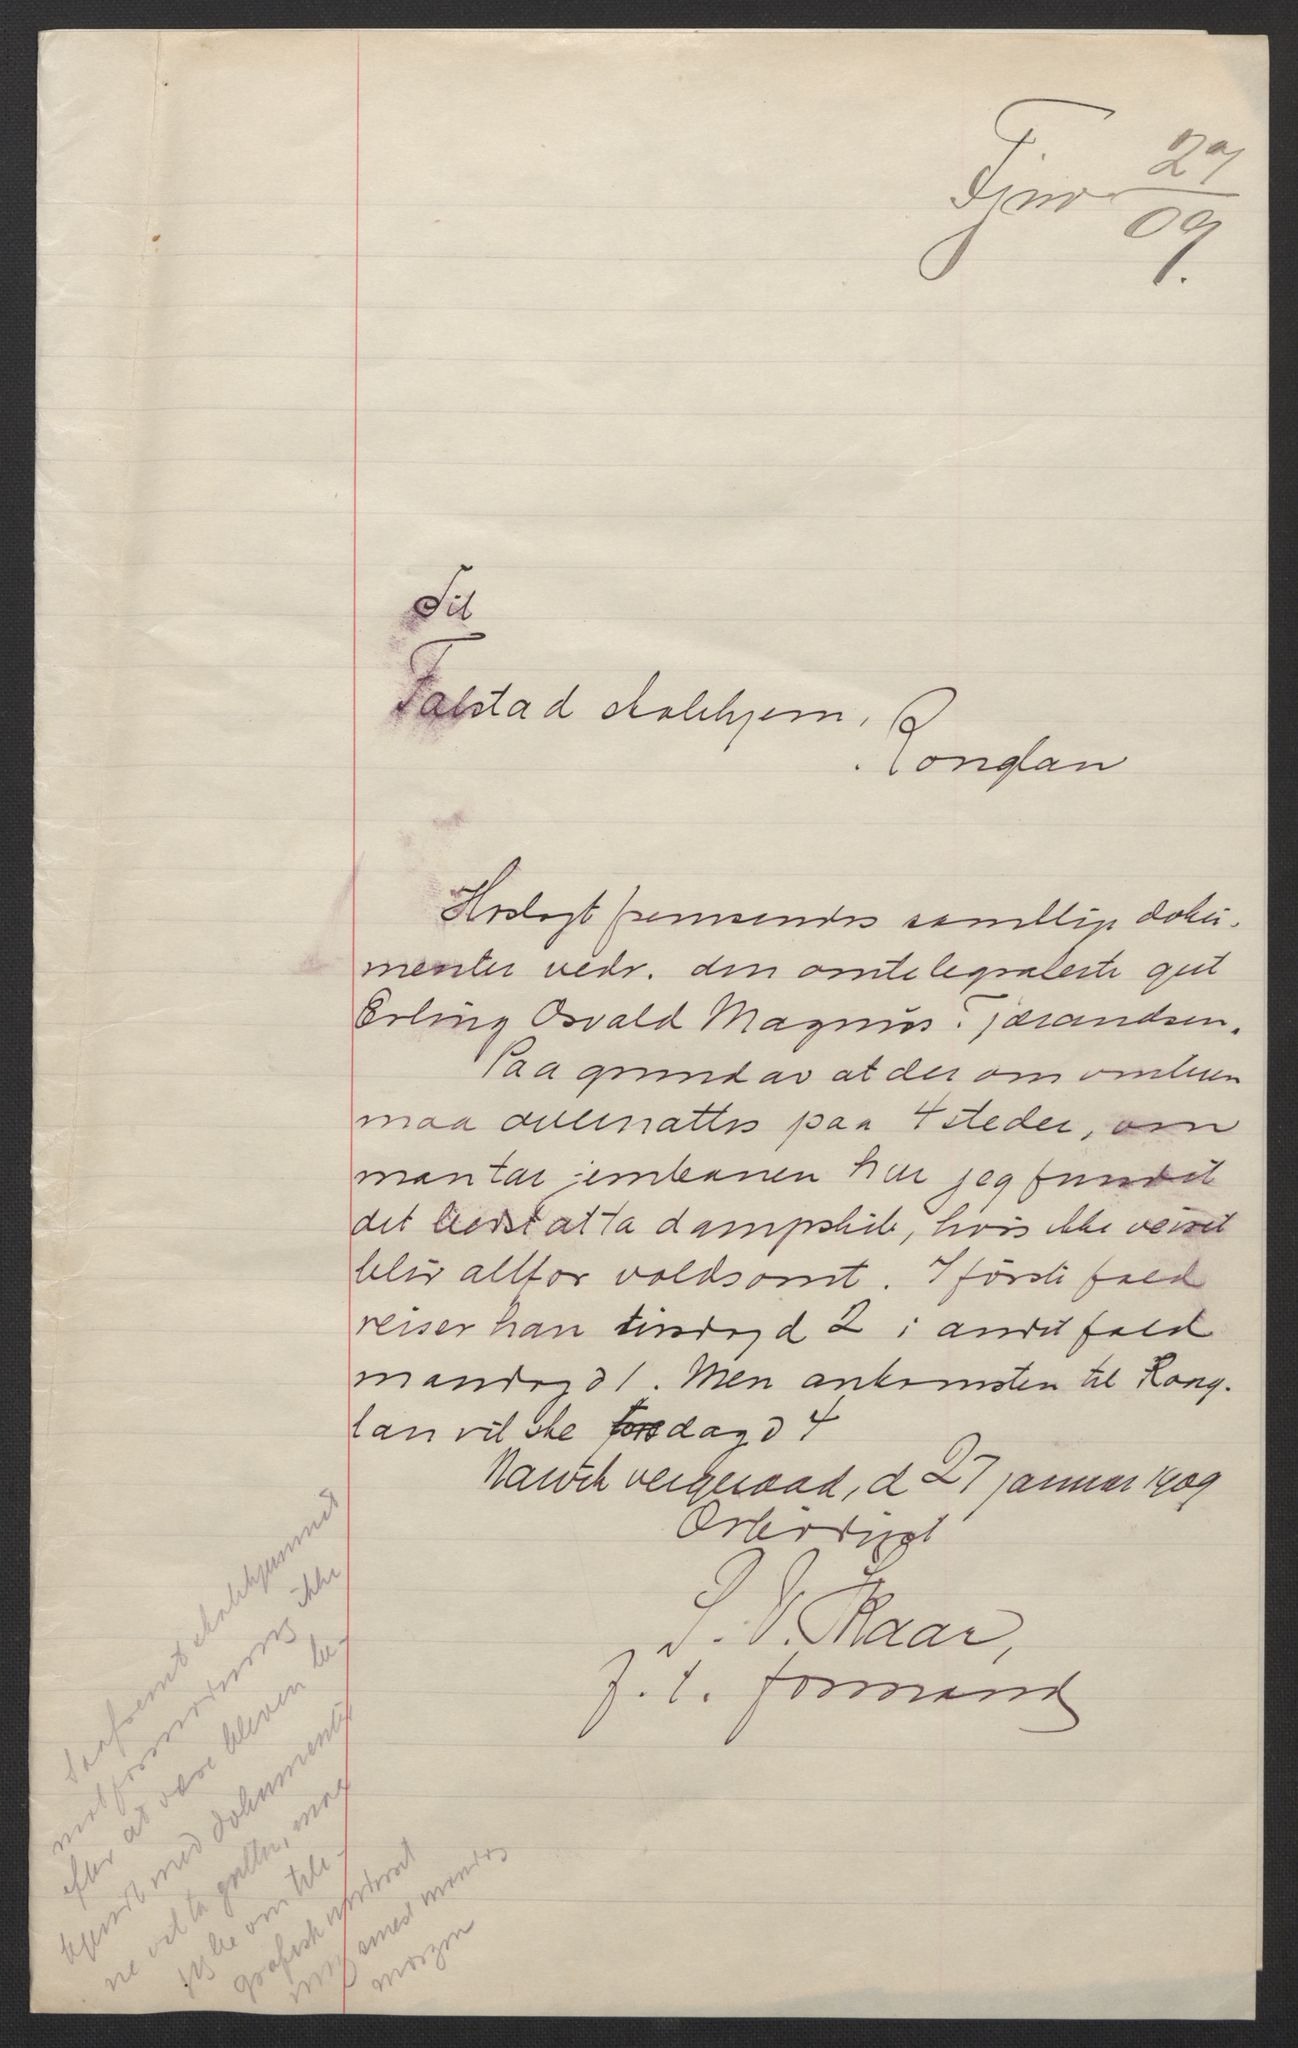 Tjnr 27/09.
Til
Falstad skolehjem,
Ronglan
Hoslagt fremsendes samtlige doku-
menter vedr. den omtelegraferte gut
Erling Osvald Magnus Tjærandsen.
Paa grund av at der om vinteren
maa overnattes paa 4 steder, om
man tar jernbanen har jeg fundet
det bedst at ta dampskib, hvis ikke veiret
blir altfor voldsomt. I första fald
reiser han tirsdag d 2 i andet fald
mandag d 1. Men ankomsten til Rong-
lan vil ske torsdag d 4
Narvik vergeraad, d 27 januar 1909
Ærbødigst
S. V. Skaar,
f. t. formand
Saafremt skolehjemmet
mot formodning ikke
efter at være bleven be-
kjendt med dokumente-
ne vil ta gutten, maa
jeg be om tele-
grafisk underret
ning senest mandag
morgen